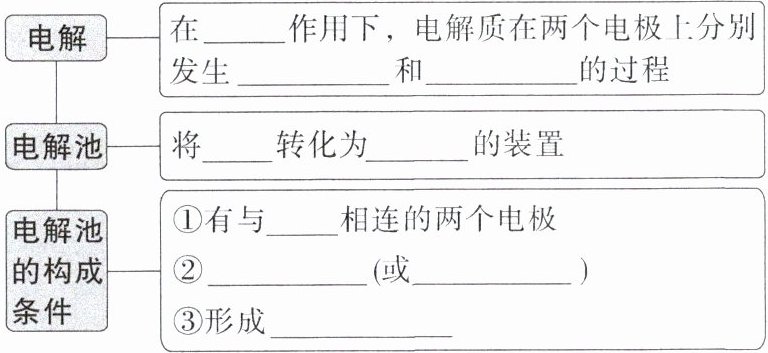 电解
在______作用下，电解质在两个电极上分别
发生___________和___________的过程
电解池
将_____转化为_______的装置
电解池
的构成
条件
①有与_____相连的两个电极
②____________(或____________)
③形成_____________